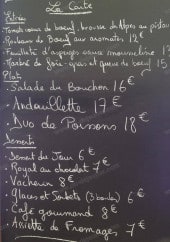 La Carte
Entrées
- Tomate coeur de boeuf, brousse des Alpes au pistou
- Carbonara de Boeuf aux aromates 12 €
- Feuilleté d'asperges sauce mousseline 13 €
- Marbré de foie-gras et queue de boeuf 15 €
Plats
- Salade du Bouchon 16 €
- Andouillette 17 €
- Duo de Poissons 18 €
Desserts
- Dessert du Jour 6 €
- Royal au chocolat 7 €
- Vacherin 8 €
- Glaces et Sorbets (3 boules) 6 €
- Café gourmand 8 €
- Assiette de Fromages 7 €